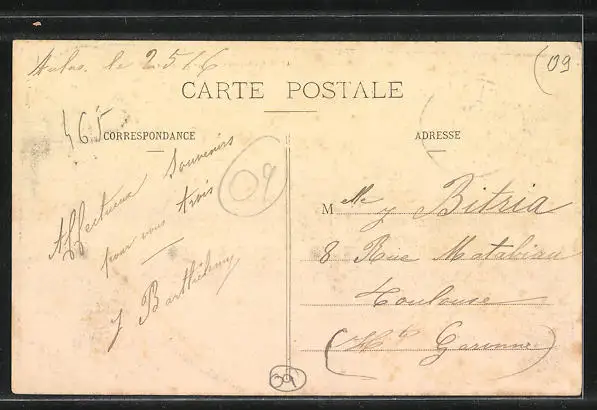 Aulus. le 25 / 6
09
CARTE POSTALE
465
CORRESPONDANCE
ADRESSE
Affectueux Souvenirs
pour vous trois
J Barthélemy
09
M elle J Bitria
8 Rue Matabiau
Toulouse
(Hte Garonne)